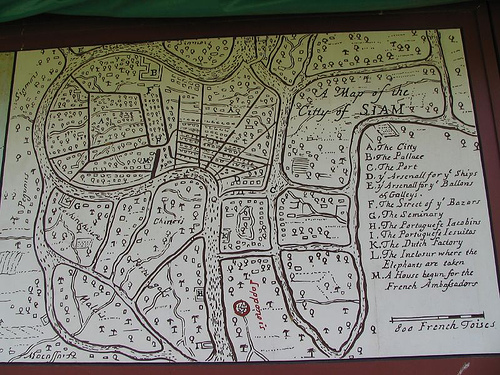 A Map of the
Citty of SIAM
A. The Citty
B. The Pallace
C. The Port
D. Yᵉ Arsenall for yᵉ Ships
E. Yᵉ Arsenall for yᵉ Ballons
of Galleys
F. The Street of yᵉ Bazars
G. The Seminary
H. The Portuguese Iacobins
I. The Portuguese Iesuitas
K. The Dutch Factory
L. The Inclosur where the
Elephants are taken
M. A House begun for the
French Ambassadors
800 French Toises
Chineses
Malays
Macassars
Peguins